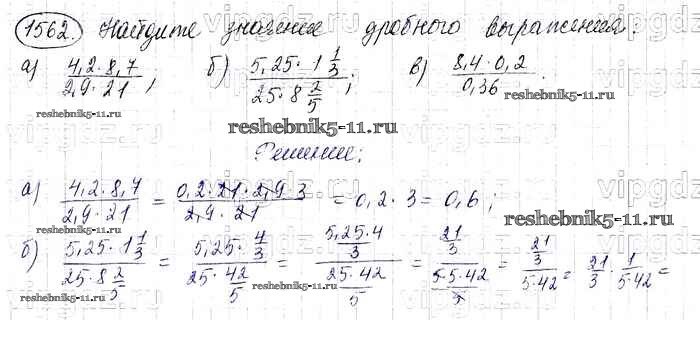 1562. Найдите значение дробного выражения:
а) (4,2 · 8,7)/(2,9 · 21); б) (5,25 · 1 1/3)/(25 · 8 2/5); в) (8,4 · 0,2)/0,36.
reshebnik5-11.ru reshebnik5-11.ru
Решение:
а) (4,2 · 8,7)/(2,9 · 21) = (0,2 · 21 · 2,9 · 3)/(2,9 · 21) = 0,2 · 3 = 0,6;
reshebnik5-11.ru
б) (5,25 · 1 1/3)/(25 · 8 2/5) = (5,25 · 4/3)/(25 · 42/5) = ((5,25 · 4)/3)/((25 · 42)/5) = (21/3)/((5 · 5 · 42)/5) = (21/3)/(5 · 42) = 21/3 · 1/(5 · 42) =
reshebnik5-11.ru reshebnik5-11.ru